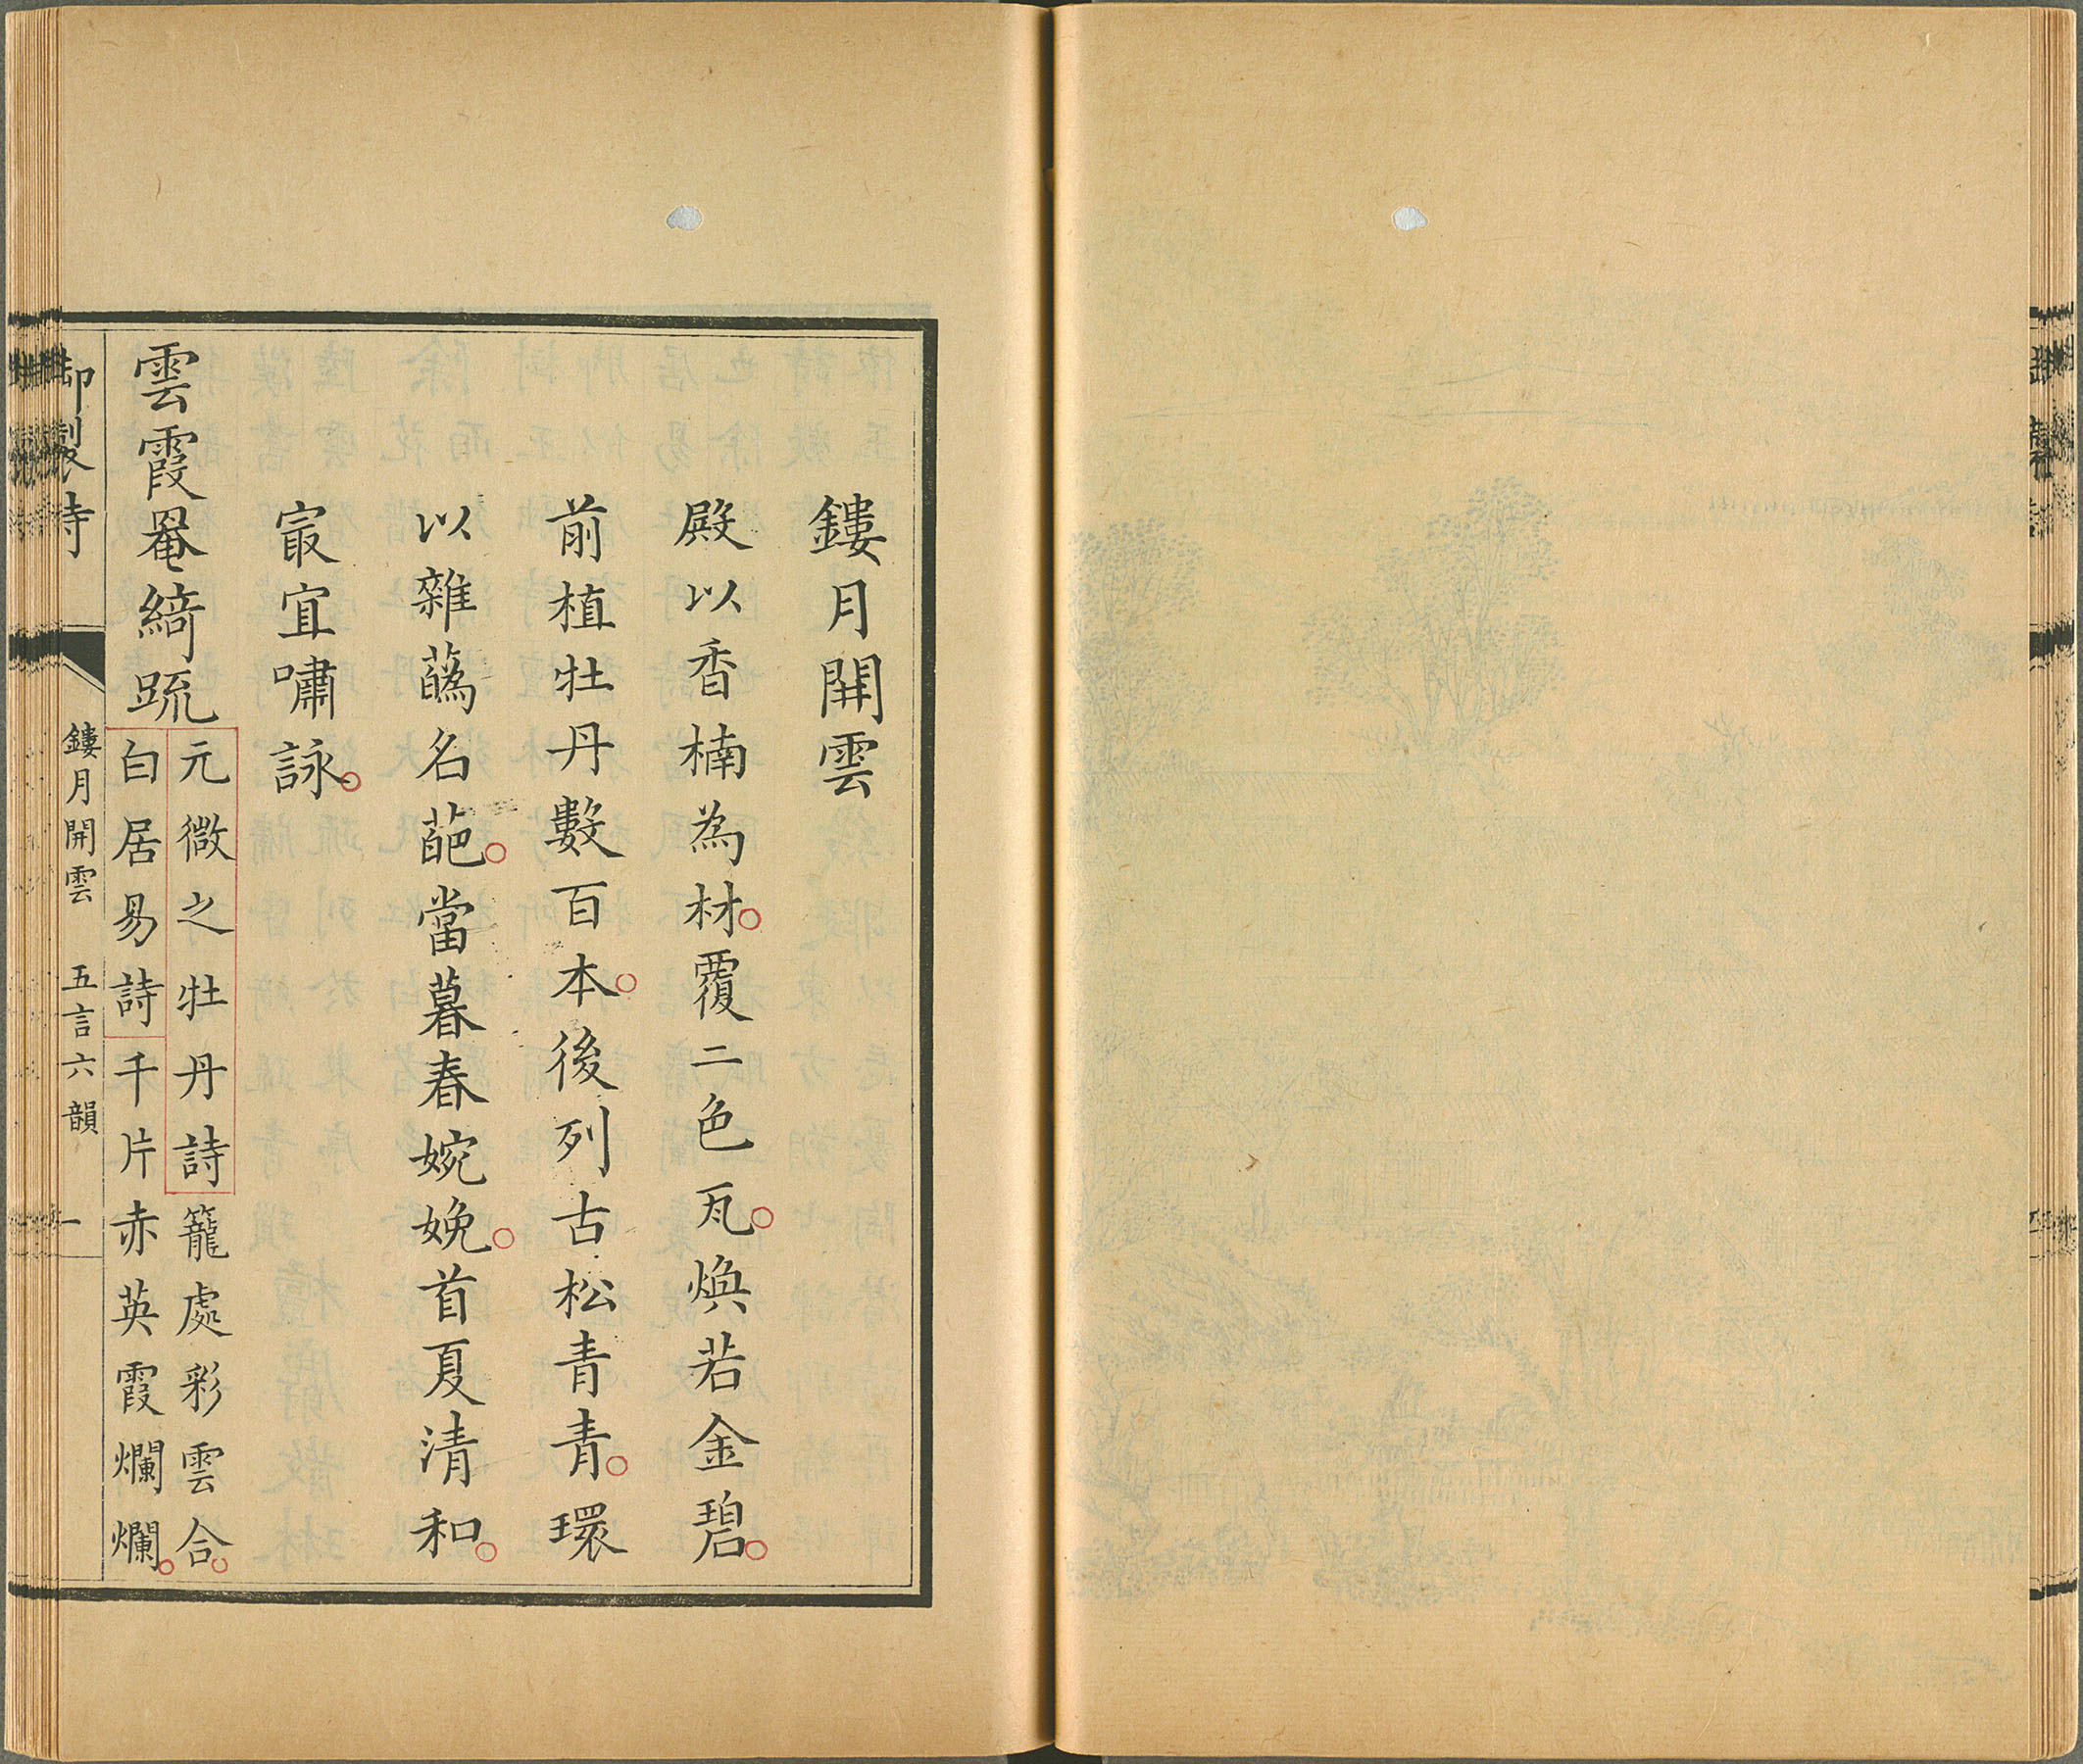 鏤月開雲
殿以香楠為材覆二色瓦煥若金碧
前植牡丹數百本後列古松青青環
以雜蘤名葩當暮春婉娩首夏清和
㝡宜嘯詠
雲霞罨綺疏
元微之牡丹詩籠處彩雲合
白居易詩千片赤英霞爛爛
御製詩
鏤月開雲 五言六韻
一